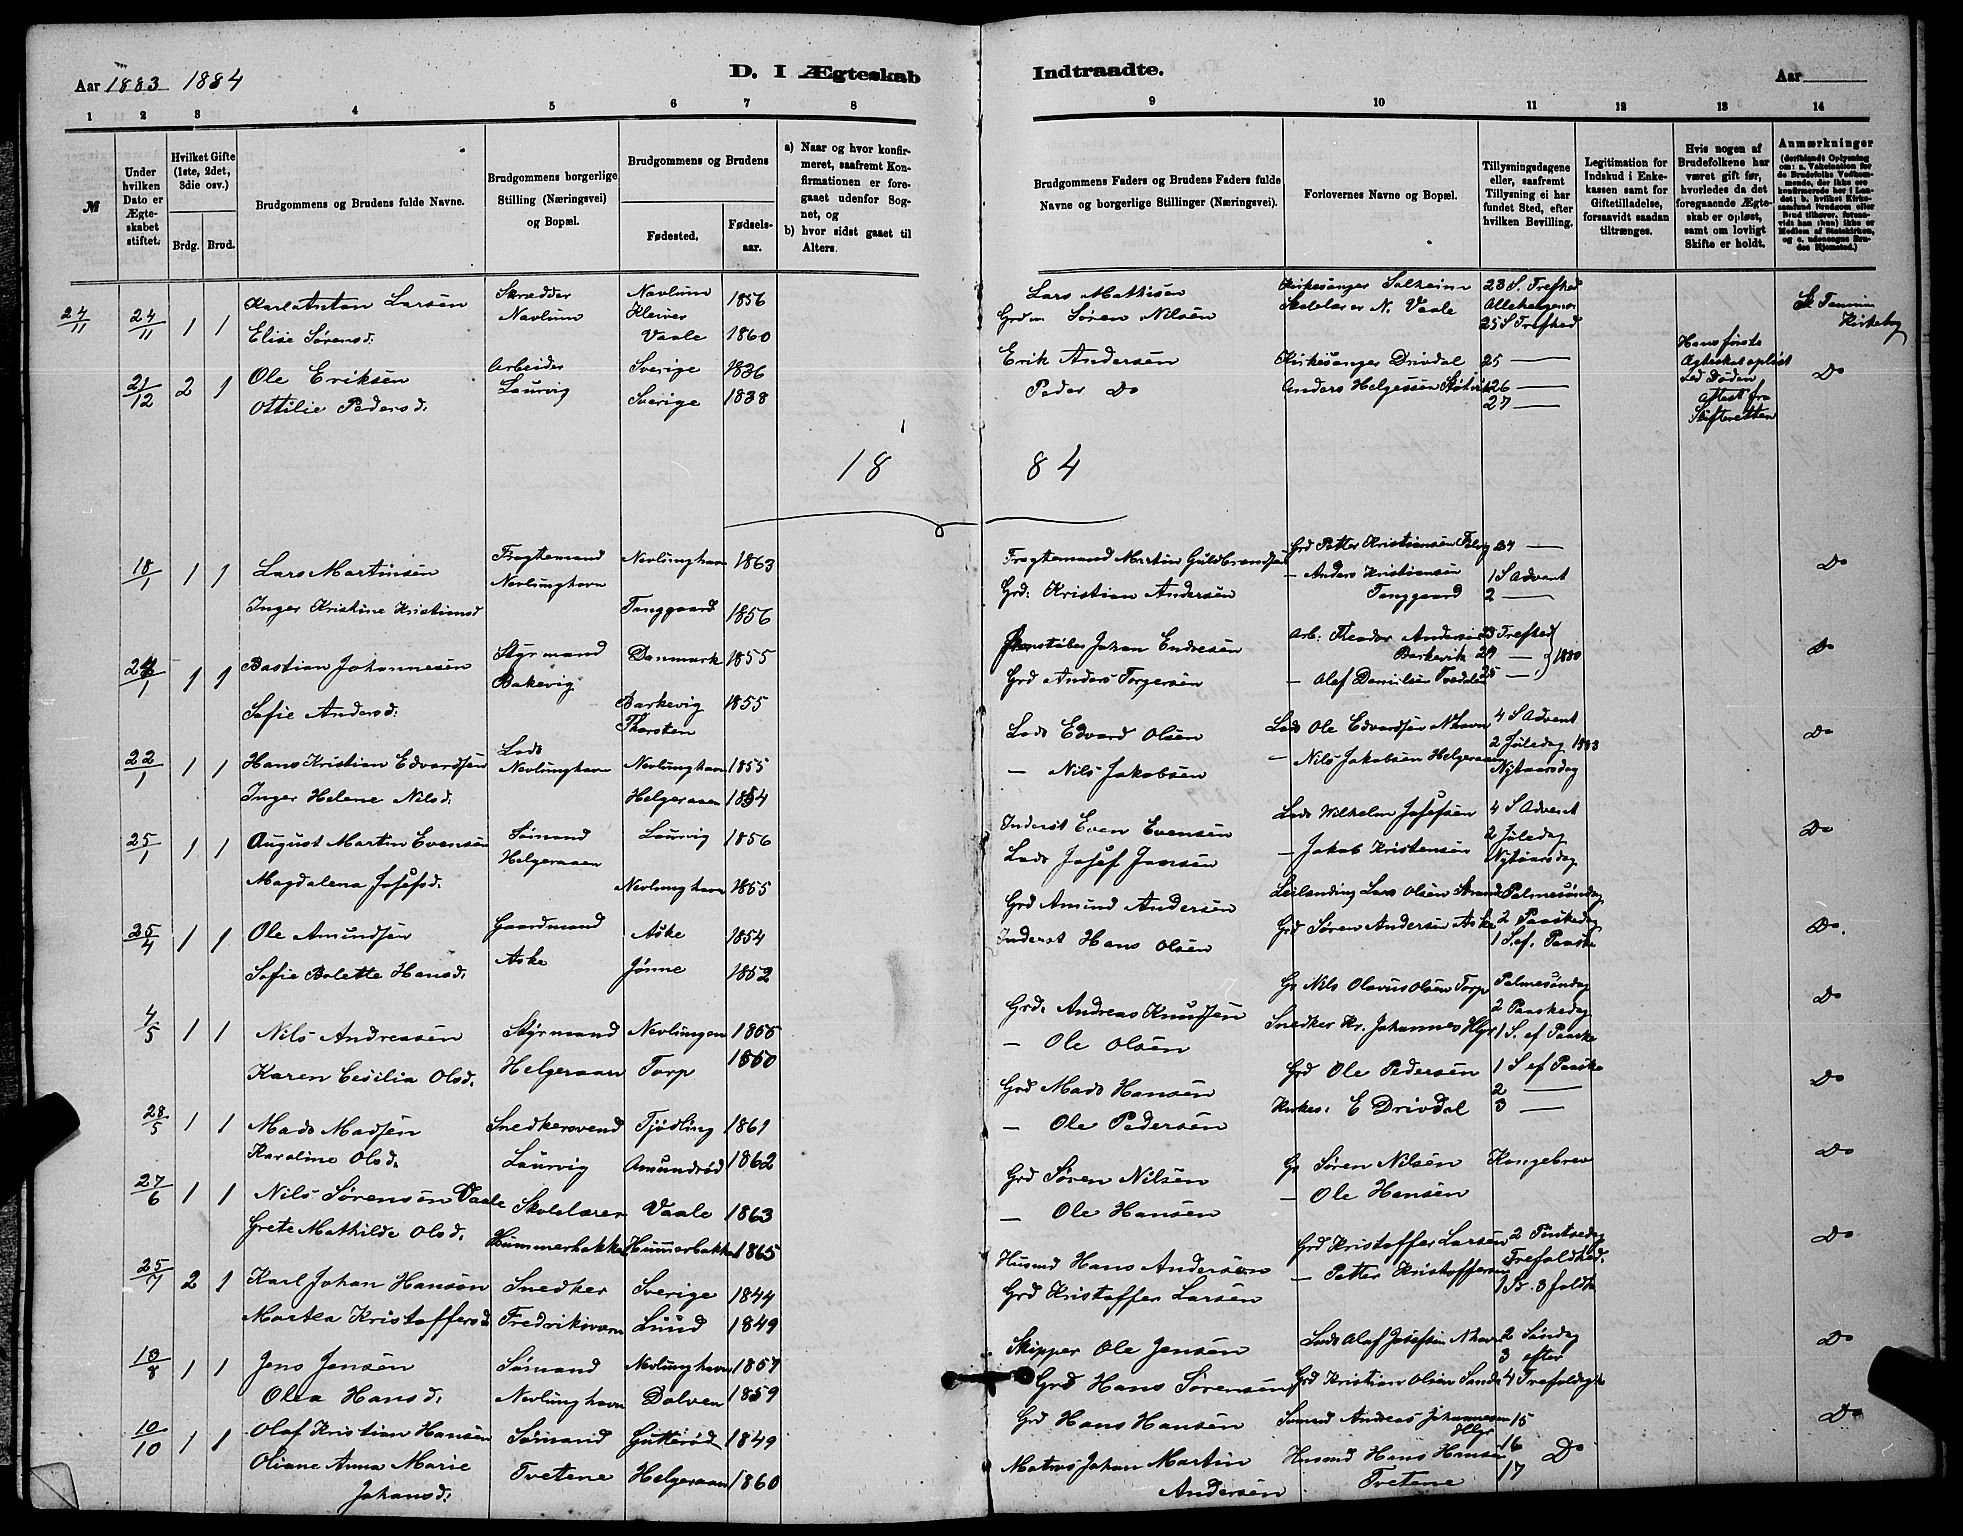 Aar 1883 1884
D. I Ægteskab Indtraadte.
Aar
1 2 3 4 5 6 7 8 9 10 11 12 13 14
№
Under hvilken Dato er Ægteskabet stiftet.
Hvilket Gifte (1ste, 2det, 3die osv.)
Brdg. Brud.
Brudgommens og Brudens fulde Navne.
Brudgommens borgerlige Stilling (Næringsvei) og Bopæl.
Brudgommens og Brudens
Fødested. Fødselsaar.
a) Naar og hvor konfirmeret, saafremt Konfirmationen er foregaaet udenfor Sognet, og
b) hvor sidst gaaet til Alters.
Brudgommens Faders og Brudens Faders fulde Navne og borgerlige Stillinger (Næringsvei).
Forlovernes Navne og Bopæl.
Tillysningsdagene eller, saafremt Tillysning ei har fundet Sted, efter hvilken Bevilling.
Legitimation for Indskud i Enkekassen samt for Giftetilladelse, forsaavidt saadan tiltrænges.
Hvis nogen af Brudefolkene har været gift før, hvorledes da det foregaaende Ægteskab er opløst, samt om lovligt Skifte er holdt.
Anmærkninger
24/11 24/11 1 1 Karl Anton Larsen Skrædder Navlum 1856 Lars Mathisen Kirkesanger Solheim 23 S. Trefhed
Elise Sørensd. Navlum Vaale 1860 Grdm. Søren Nilsen Skolelærer N. Vaale Allehelgensd. 25 S Trefhed Kirkebog
21/12 2 1 Ole Eriksen Arbeider Sverige 1836 Erik Andersen Kirkesanger Drivdal 25 — Hans første Do
Ottilie Pedersd. Laurvig Sverige 1838 Peder Do Anders Helgessen 26 — 27 — Ægteskab opløst ved Døden Attest fra Skifteretten
1884
18/1 1 1 Lars Martinsen Fragtemand Nevlunghavn 1863 Fragtemand Martin Guldbrandsen Grd Petter Kristiansen 27 — Do
Inger Kristine Kristiansd Nevlunghavn Tanggaard 1856 Grd. Kristian Andersen — Anders Kristiansen Tanggaard 1 S Advent 2 —
1 1 Bastian Johannesen Styrmand Danmark 1855 Johan Endresen Arb: Theodor Andersen Barkevik 23 Trefhed 1880 Do
Sofie Andersd. Bakevig Barkevig Thorsten 1855 Grd Anders Torgersen — Olaf Danielsen 25 —
22/1 1 1 Hans Kristian Edvardsen Lods Nevlunghavn Nevlunghavn 1855 Lods Edvard Olsen Lods Ole Edvardsen Nhavn 4 S Advent Do
Inger Helene Nilsd. Helgeraaen 1854 — Nils Jakobsen — Nils Jakobsen Helgeraaen 2 Juledag 1883 Nytaarsdag
25/1 1 1 August Martin Evensen Sømand Laurvig 1856 Inderst Even Evensen Lods Wilhelm Josefsen 4 S Advent Do
Magdalena Josefsd. Helgeraaen Nevlunghavn 1855 Lods Josef Jansen — Jakob Kristensen 2 Juledag Nytaarsdag
25/4 1 1 Ole Amundsen Gaardmand Aske 1854 Grd Amund Andersen Leilending Lars Olsen Palmesøndag Do.
Sofie Bolette Hansd. Aske Jønne 1852 Inderst Hans Olsen Grd Søren Andersen Aske 2 Paaskedag 1 S. ef. Paaske
4/5 1 1 Nils Andreasen Styrmand Nevlungen 1855 Grd. Andreas Knudsen Gr Nils Olavus Olsen Torp Palmesøndag Do
Karen Cesilia Olsd. Helgeraaen Torp 1860 — Ole Olsen Snedker Kr. Johannes Hgr 2 Paaskedag 1 S. ef Paaske
28/5 1 1 Mads Madsen Snedkersvend Tjødling 1861 Grd Mads Hansen Grd Ole Pedersen 1 S ef Paaske Do
Karoline Olsd. Laurvig Amundrød 1862 — Ole Pedersen Kirkes. E Drivdal 2 — 3 —
27/6 1 1 Nils Sørensen Vaale Skolelærer Vaale 1863 Grd Søren Nilsen Gr Søren Nilsen Kongebrev Do
Grete Mathilde Olsd. Hummerbakken Hummerbakken 1865 — Ole Hansen — Ole Hansen
25/7 2 1 Karl Johan Hanson Snedker Sverige 1844 Husmd Hans Anderson Grd Kristoffer Larsen 2 Pintsedag Do
Martea Kristoffersd Fredriksværn Lund 1849 Grd Kristoffer Larsen — Petter Kristoffersen Trefoldhed. 1 S. 3 foldh
13/8 1 1 Jens Jensen Sømand Nevlunghavn 1857 Skipper Ole Jensen Lods Olaf Josefsen Nhavn 2 Søndag Do
Olea Hansd. Nevlunghavn Dolven 1859 Grd Hans Sørensen Grd Kristian Olsen Sande 3 efter 4 Trefoldigh
10/10 1 1 Olaf Kristian Hansen Sømand Gutterød 1849 Grd Hans Hansen Sømand Andreas Johannesen Hlgr 15 Do
Oliane Anna Marie Johansd. Tvetene Helgeraaen 1860 Matros Johan Martin Andersen Husmd Hans Hansen Tvetene 16 17 Do